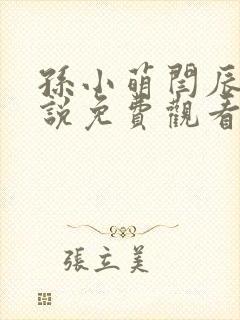 孫小萌閆辰
說免費觀看
張立美